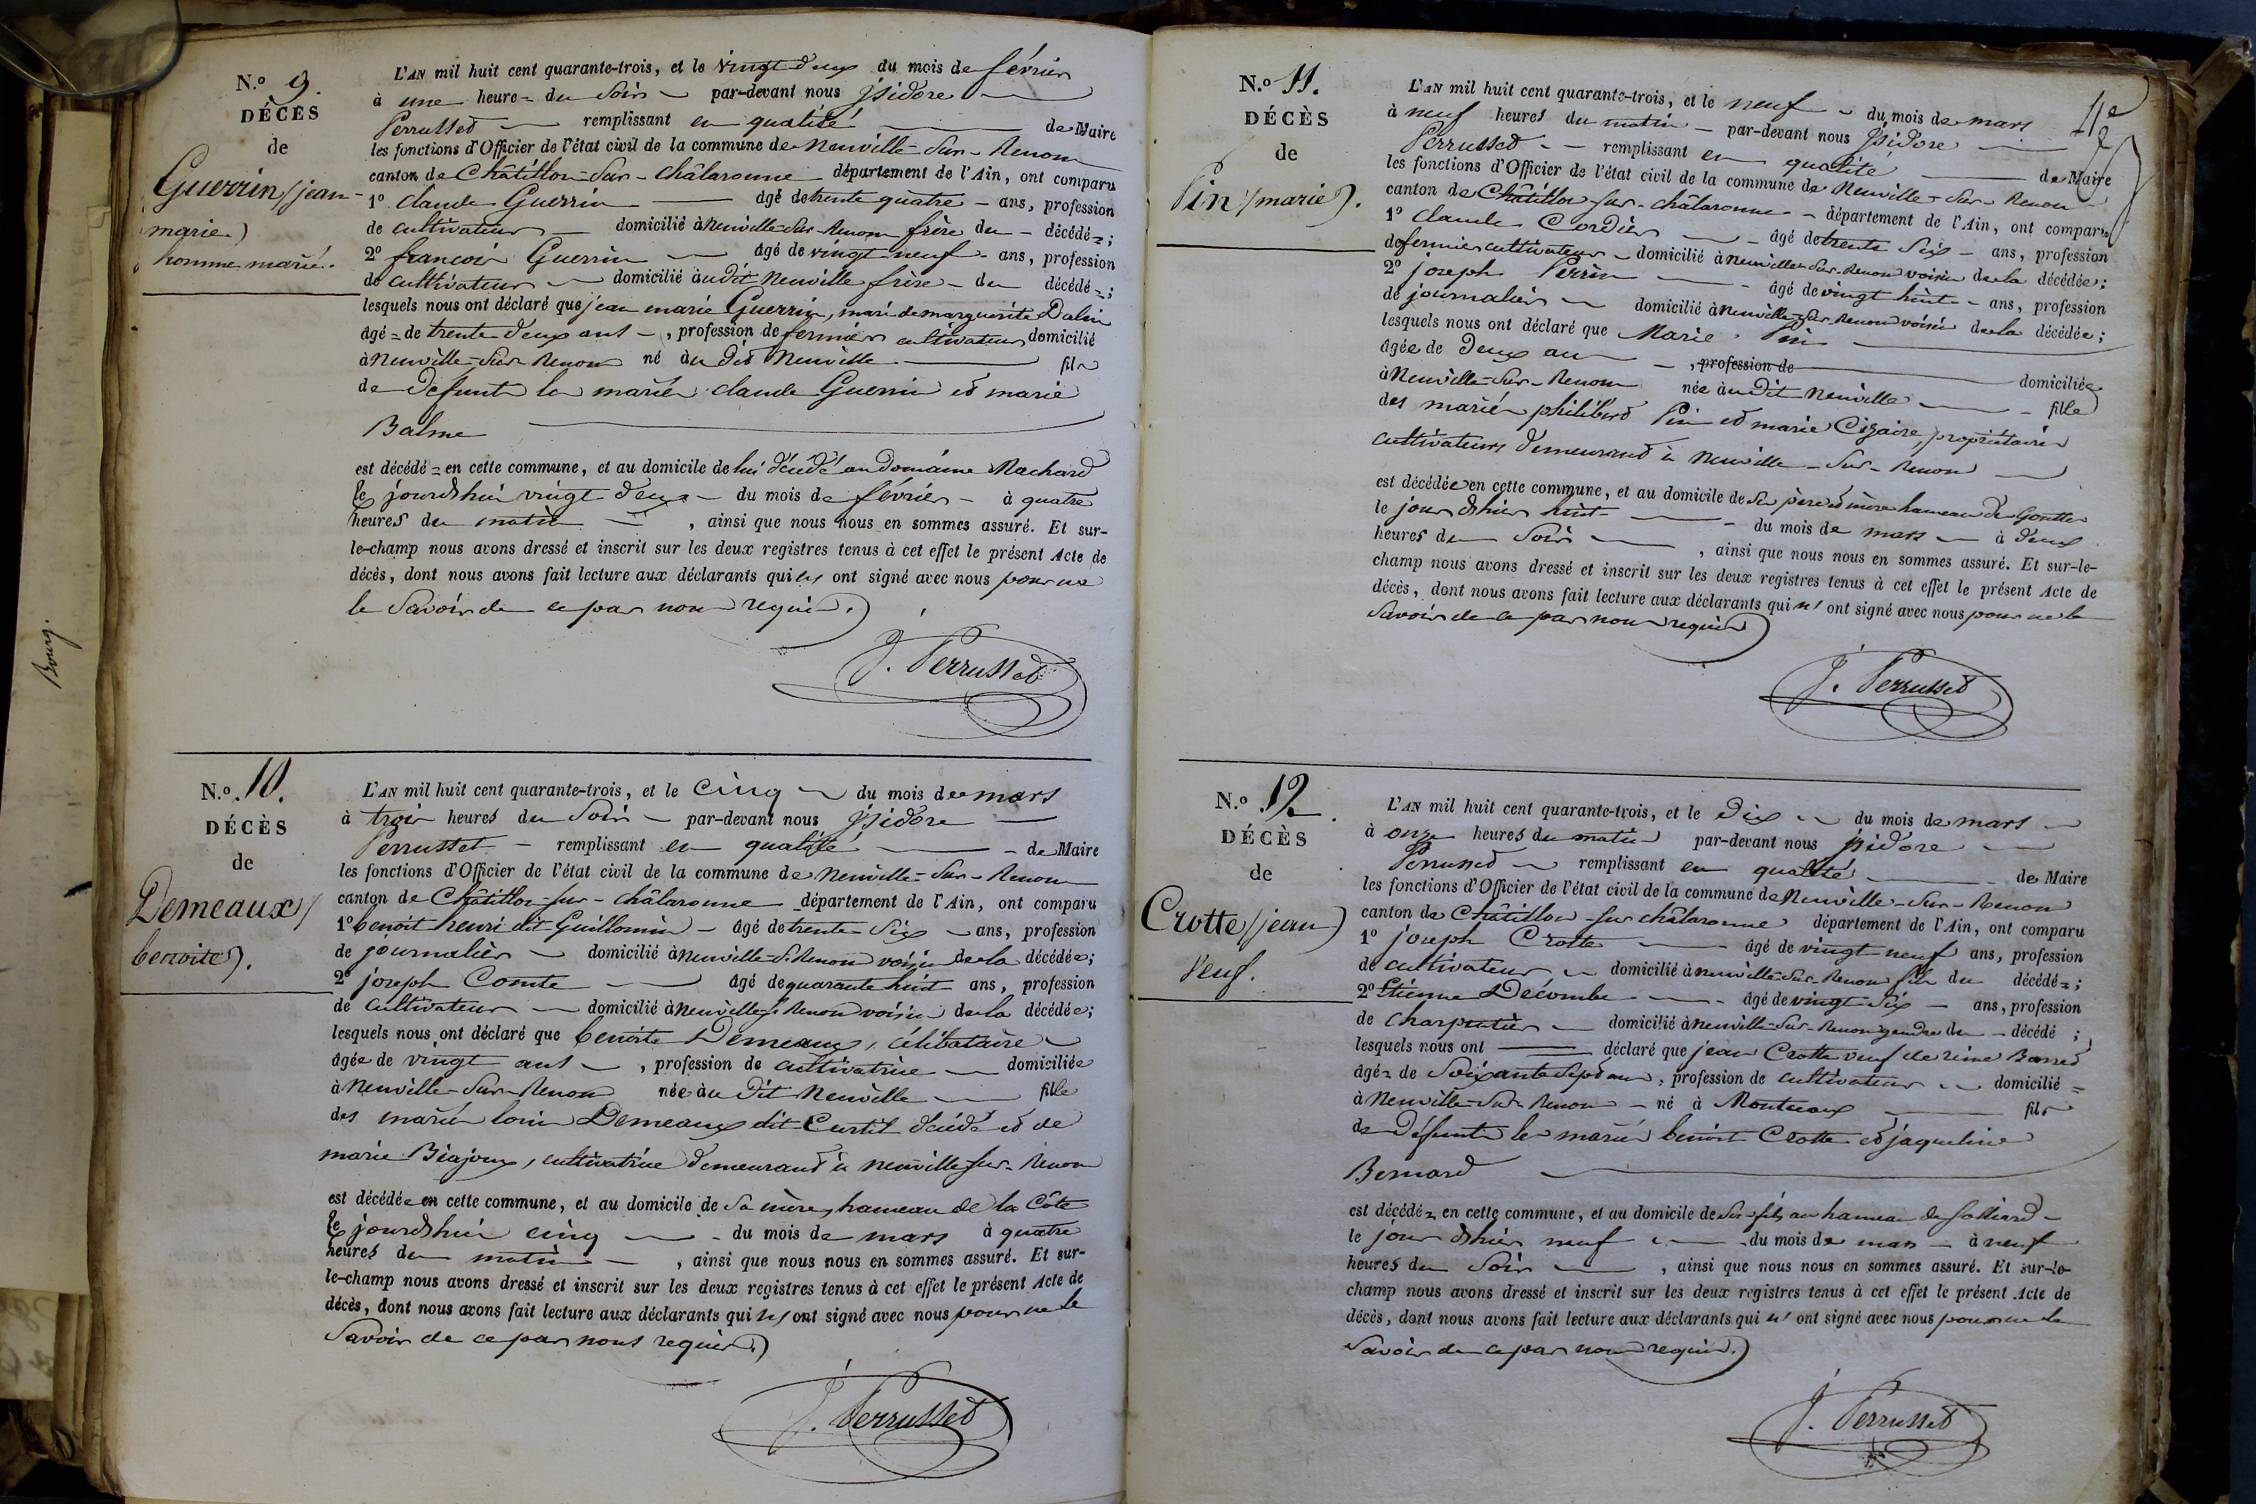 Bourg.
N.º 9.
DÉCÈS
de
Guerrin (jean
marie)
homme marié.
L'AN mil huit cent quarante-trois, et le vingt deux du mois de février
à une heure = du soir par-devant nous jsidore
Perrussed remplissant en qualité de Maire
les fonctions d'Officier de l'état civil de la commune de Neuville-Sur-Renom
canton de Châtillon-Sur-châlaronne département de l'Ain, ont comparu
1º claude Guerrin âgé de trente quatre ans, profession
de cultivateur domicilié à neuville-sur-Renom frère du décédé = ;
2º francois Guerrin âgé de vingt neuf ans, profession
de cultivateur domicilié au dit Neuville frère du décédé = ;
lesquels nous ont déclaré que jean marie Guerrin, mari de marguerite
âgé = de trente deux ans, profession de fermier cultivateur domicilié
à Neuville-Sur-Renom né au dit Neuville fils
de defunts les mariés claude Guerrin et marie
Balme
est décédé = en cette commune, et au domicile de lui décédé au domaine Machard
le jourd'hui vingt deux du mois de février à quatre
heures du matin, ainsi que nous nous en sommes assuré. Et sur-
le-champ nous avons dressé et inscrit sur les deux registres tenus à cet effet le présent Acte de
décès, dont nous avons fait lecture aux déclarants qui n' ont signé avec nous pour ne
le savoir de ce par nous requis.
J. Perrussed
N.º 10.
DÉCÈS
de
Demeaux (
benoite).
L'AN mil huit cent quarante-trois, et le cinq du mois de mars
à trois heures du soir par-devant nous jsidore
Perrusset remplissant en qualité de Maire
les fonctions d'Officier de l'état civil de la commune de Neuville-Sur-Renom
canton de Châtillon-sur-châlaronne département de l'Ain, ont comparu
1º benoit henri dit Guillomin âgé de trente six ans, profession
de journalier domicilié à Neuville-S.-Renom voisin de la décédée ;
2º joseph Comte âgé de quarante huit ans, profession
de cultivateur domicilié à Neuville-S.-Renom voisin de la décédée ;
lesquels nous ont déclaré que benoite Demeaux, célibataire
âgée de vingt ans, profession de cultivatrice domiciliée
à Neuville-Sur-Renom née au dit Neuville fille
des mariés louis Demeaux dit Curtil décédé et de
marie Béajoux, cultivatrice demeurant à neuville-sur-Renom
est décédée en cette commune, et au domicile de sa mère, hameau de la Côte
le jourd'hui cinq du mois de mars à quatre
heures du matin, ainsi que nous nous en sommes assuré. Et sur-
le-champ nous avons dressé et inscrit sur les deux registres tenus à cet effet le présent Acte de
décès, dont nous avons fait lecture aux déclarants qui n' ont signé avec nous pour ne le
savoir de ce par nous requis.
J. Perrussed
11e
N.º 11.
DÉCÈS
de
Pin (marie).
L'AN mil huit cent quarante-trois, et le neuf du mois de mars
à neuf heures du matin par-devant nous jsidore
Perrussed remplissant en qualité de Maire
les fonctions d'Officier de l'état civil de la commune de Neuville-Sur-Renom
canton de Châtillon-sur-châlaronne département de l'Ain, ont comparu
1º claude Cordier âgé de trente six ans, profession
de fermier cultivateur domicilié à neuville-Sur-Renom voisin de la décédée ;
2º joseph Perrin âgé de vingt huit ans, profession
de journalier domicilié à Neuville-Sur-Renom voisin de la décédée ;
lesquels nous ont déclaré que Marie Pin
âgée de deux ans, profession de domiciliée
à Neuville-Sur-Renom née au dit Neuville fille
des mariés philibert Pin et marie Cizaire, propriétaires
cultivateurs demeurant à neuville-Sur-Renom
est décédée en cette commune, et au domicile de ses père et mère hameau de
le jour d'hier huit du mois de mars à deux
heures du soir, ainsi que nous nous en sommes assuré. Et sur-le-
champ nous avons dressé et inscrit sur les deux registres tenus à cet effet le présent Acte de
décès, dont nous avons fait lecture aux déclarants qui n' ont signé avec nous pour ne le
savoir de ce par nous requis
J. Perrussed
N.º 12.
DÉCÈS
de
Crotte (jean)
Veuf.
L'AN mil huit cent quarante-trois, et le dix du mois de mars
à onze heures du matin par-devant nous jsidore
Perrussed remplissant en qualité de Maire
les fonctions d'Officier de l'état civil de la commune de Neuville-Sur-Renom
canton de Châtillon-sur châlaronne département de l'Ain, ont comparu
1º joseph Crotte âgé de vingt neuf ans, profession
de cultivateur domicilié à neuville-sur-Renom fils du décédé = ;
2º Etienne Décombe âgé de vingt six ans, profession
de charpentier domicilié à neuville-Sur-Renom gendre du décédé ;
lesquels nous ont déclaré que jean Crotte veuf de reine
âgé = de soixante sept ans, profession de cultivateur domicilié =
à Neuville-Sur-Renom né à Montceaux fils
de défunts les mariés benoit Crotte et jaqueline
Bernard
est décédé = en cette commune, et au domicile de son fils au hameau de
le jour d'hier neuf du mois de mars à neuf
heures du soir, ainsi que nous nous en sommes assuré. Et sur-le-
champ nous avons dressé et inscrit sur les deux registres tenus à cet effet le présent Acte de
décès, dont nous avons fait lecture aux déclarants qui n' ont signé avec nous pour ne le
savoir de ce par nous requis.
J. Perrussed